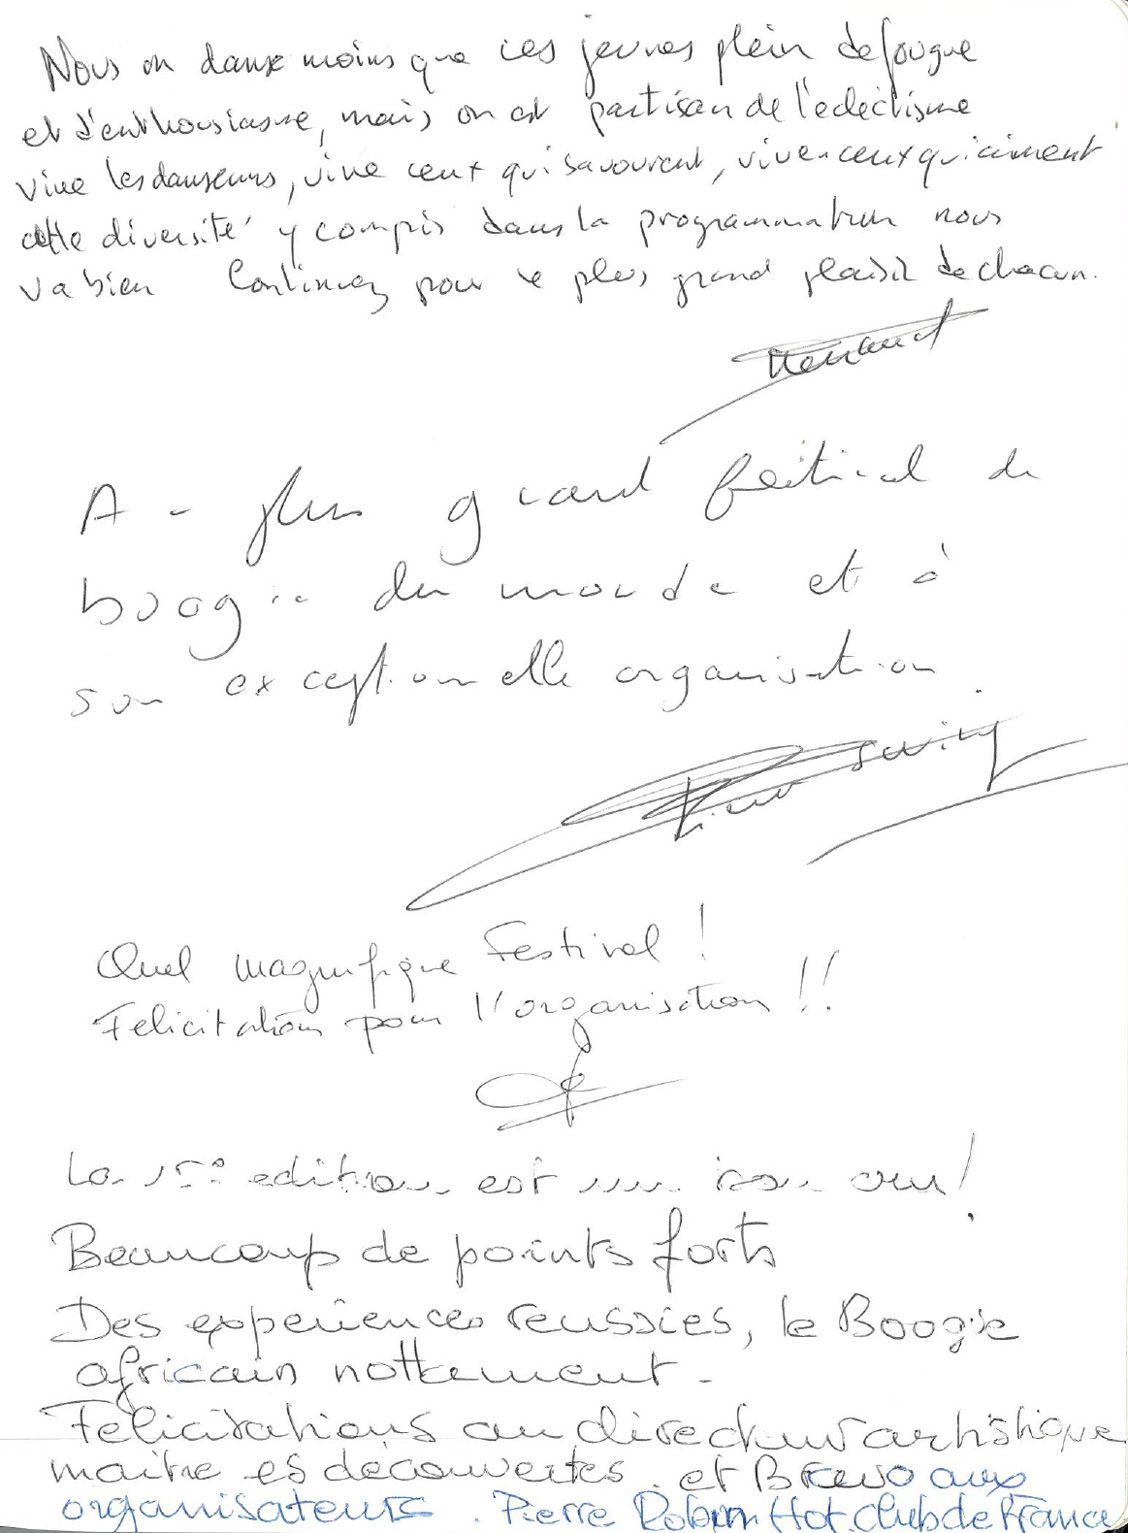 Nous on danse moins que ces jeunes plein de fougue
et d'enthousiasme, mais on est partisan de l'eclectisme
vive les danseurs, vive ceux qui savourent, vive ceux qui aiment
cette diversité y compris dans la programmation nous
va bien Continuez pour le plus grand plaisir de chacun.
A - plus grand festival de
boogie du monde et à
son exceptionnelle organisation.
Swing
Quel magnifique Festival !
Felicitations pour l'organisation !!
La 15° edition est un bon cru !
Beaucoup de points forts
Des experiences reussies, le Boogie
africain nottement -
Félicitations au directeur artistique
maitre es découvertes. et Bravo aux
organisateurs. Pierre Robin Hot club de France